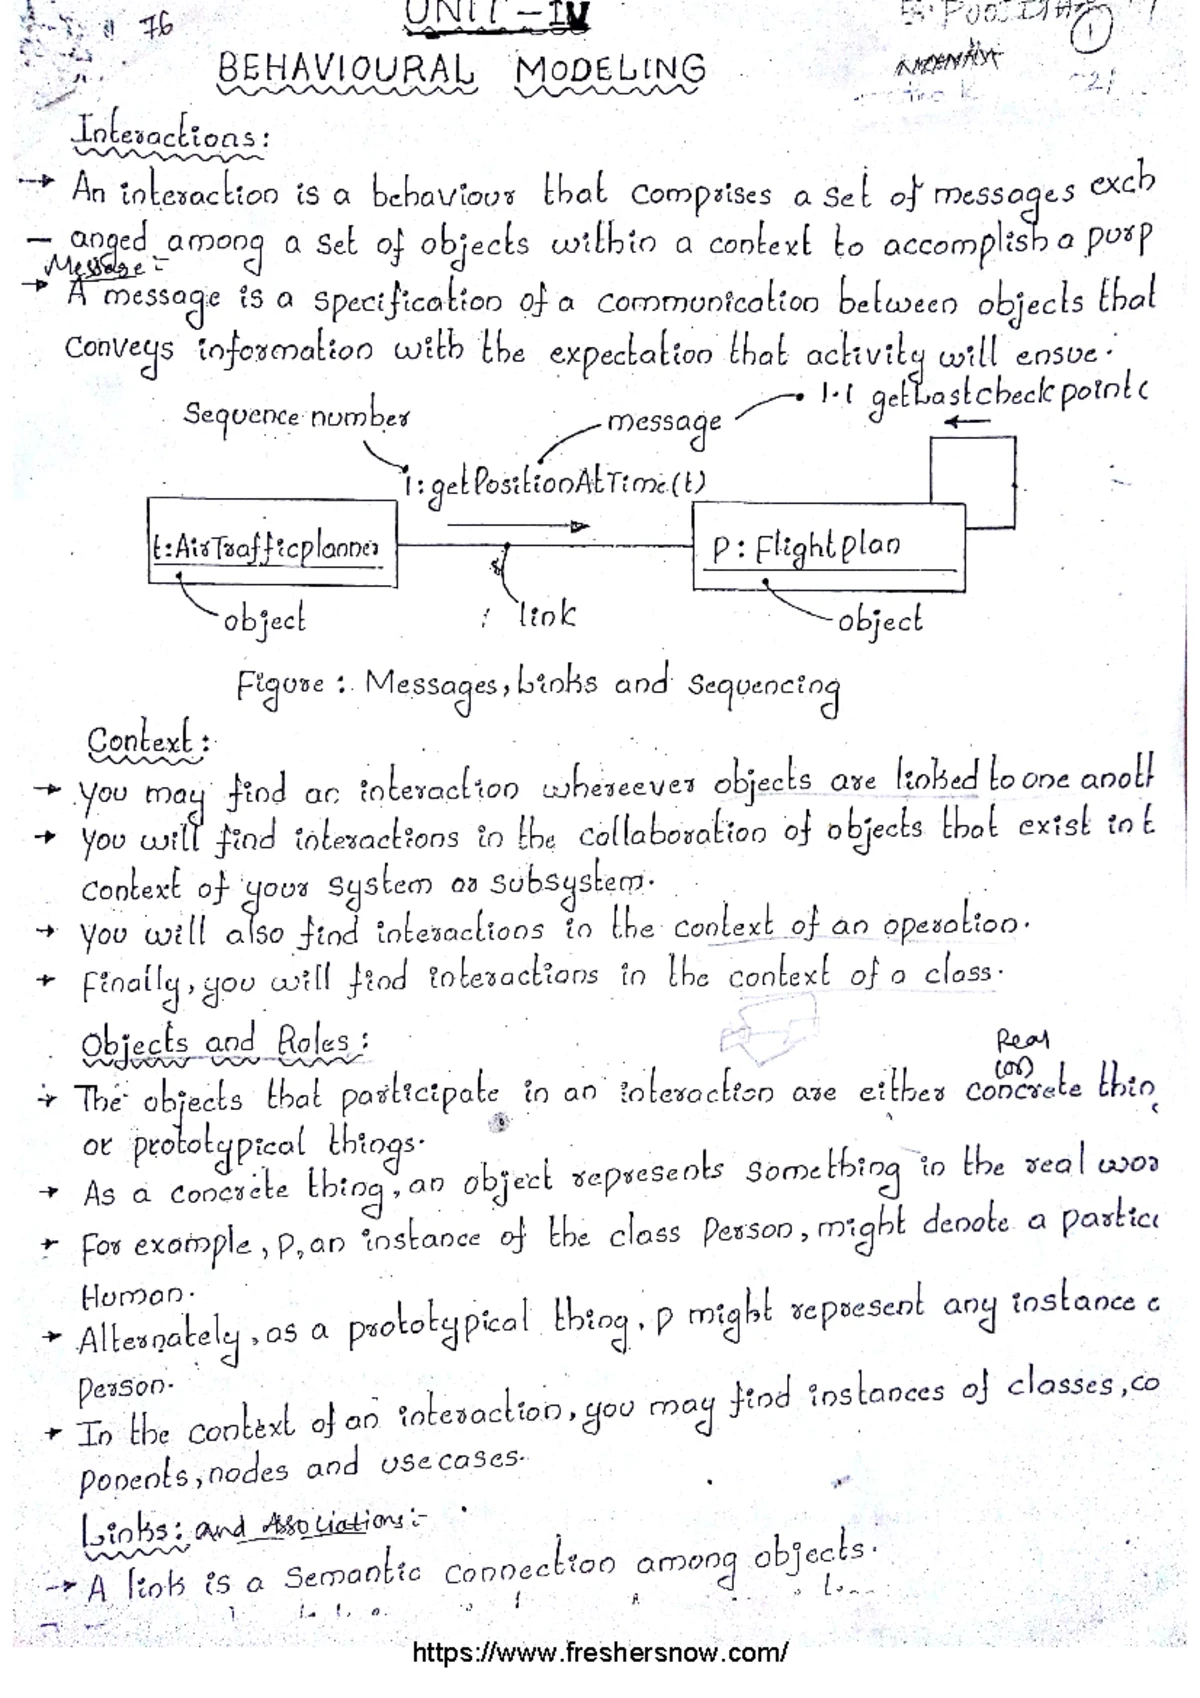 76
UNIT - IV
1
BEHAVIOURAL MODELING
Interactions:
→ An interaction is a behaviour that comprises a set of messages exch
- anged among a set of objects within a context to accomplish a purp
Message:-
→ A message is a specification of a communication between objects that
conveys information with the expectation that activity will ensue.
1.1 getLastcheckpoint(
Sequence number
message
1: getPositionAtTime(t)
t:AirTrafficplanner
p: Flightplan
object
link
object
Figure: Messages, Links and Sequencing
Context:
→ you may find an interaction whereever objects are linked to one anoth
→ you will find interactions in the collaboration of objects that exist in t
context of your system or subsystem.
→ you will also find interactions in the context of an operation.
→ Finally, you will find interactions in the context of a class.
Objects and Roles:
Real
(or)
→ The objects that participate in an interaction are either concrete thin
or prototypical things.
→ As a concrete thing, an object represents something in the real wor
→ For example, p, an instance of the class Person, might denote a partic
Human.
→ Alternately, as a prototypical thing, p might represent any instance
person.
→ In the context of an interaction, you may find instances of classes, co
ponents, nodes and use cases.
Links: and Associations:-
→ A link is a semantic connection among objects.
https://www.freshersnow.com/